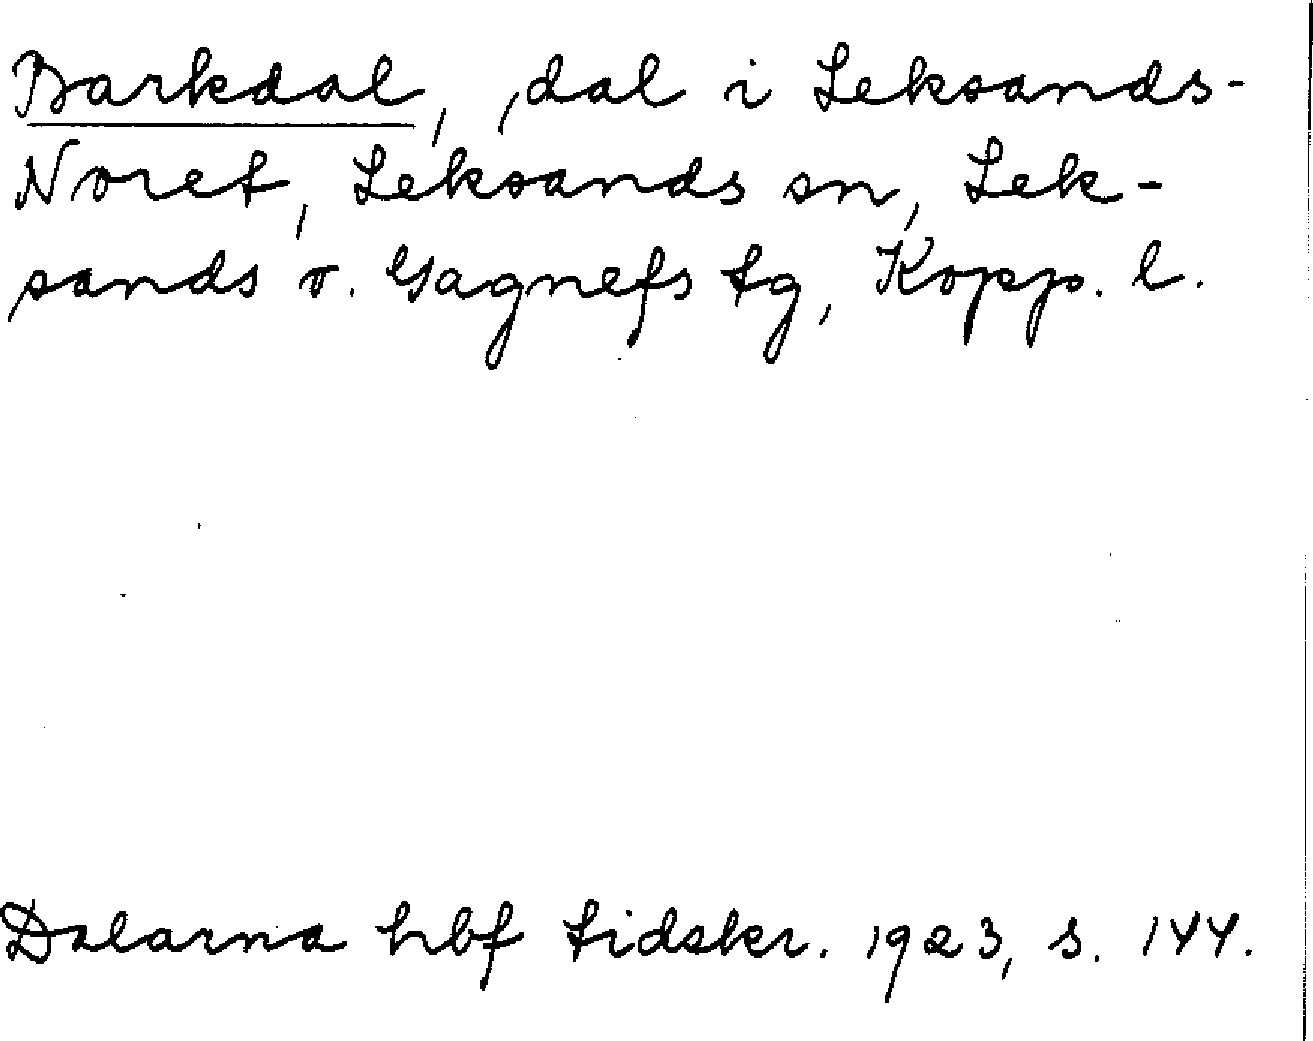 Barkdal, dal i Leksands-
Noret, Leksands sn, Lek-
sands o. Gagnefs tg, Kopp. l.
Dalarna hbf tidskr. 1923, s. 144.